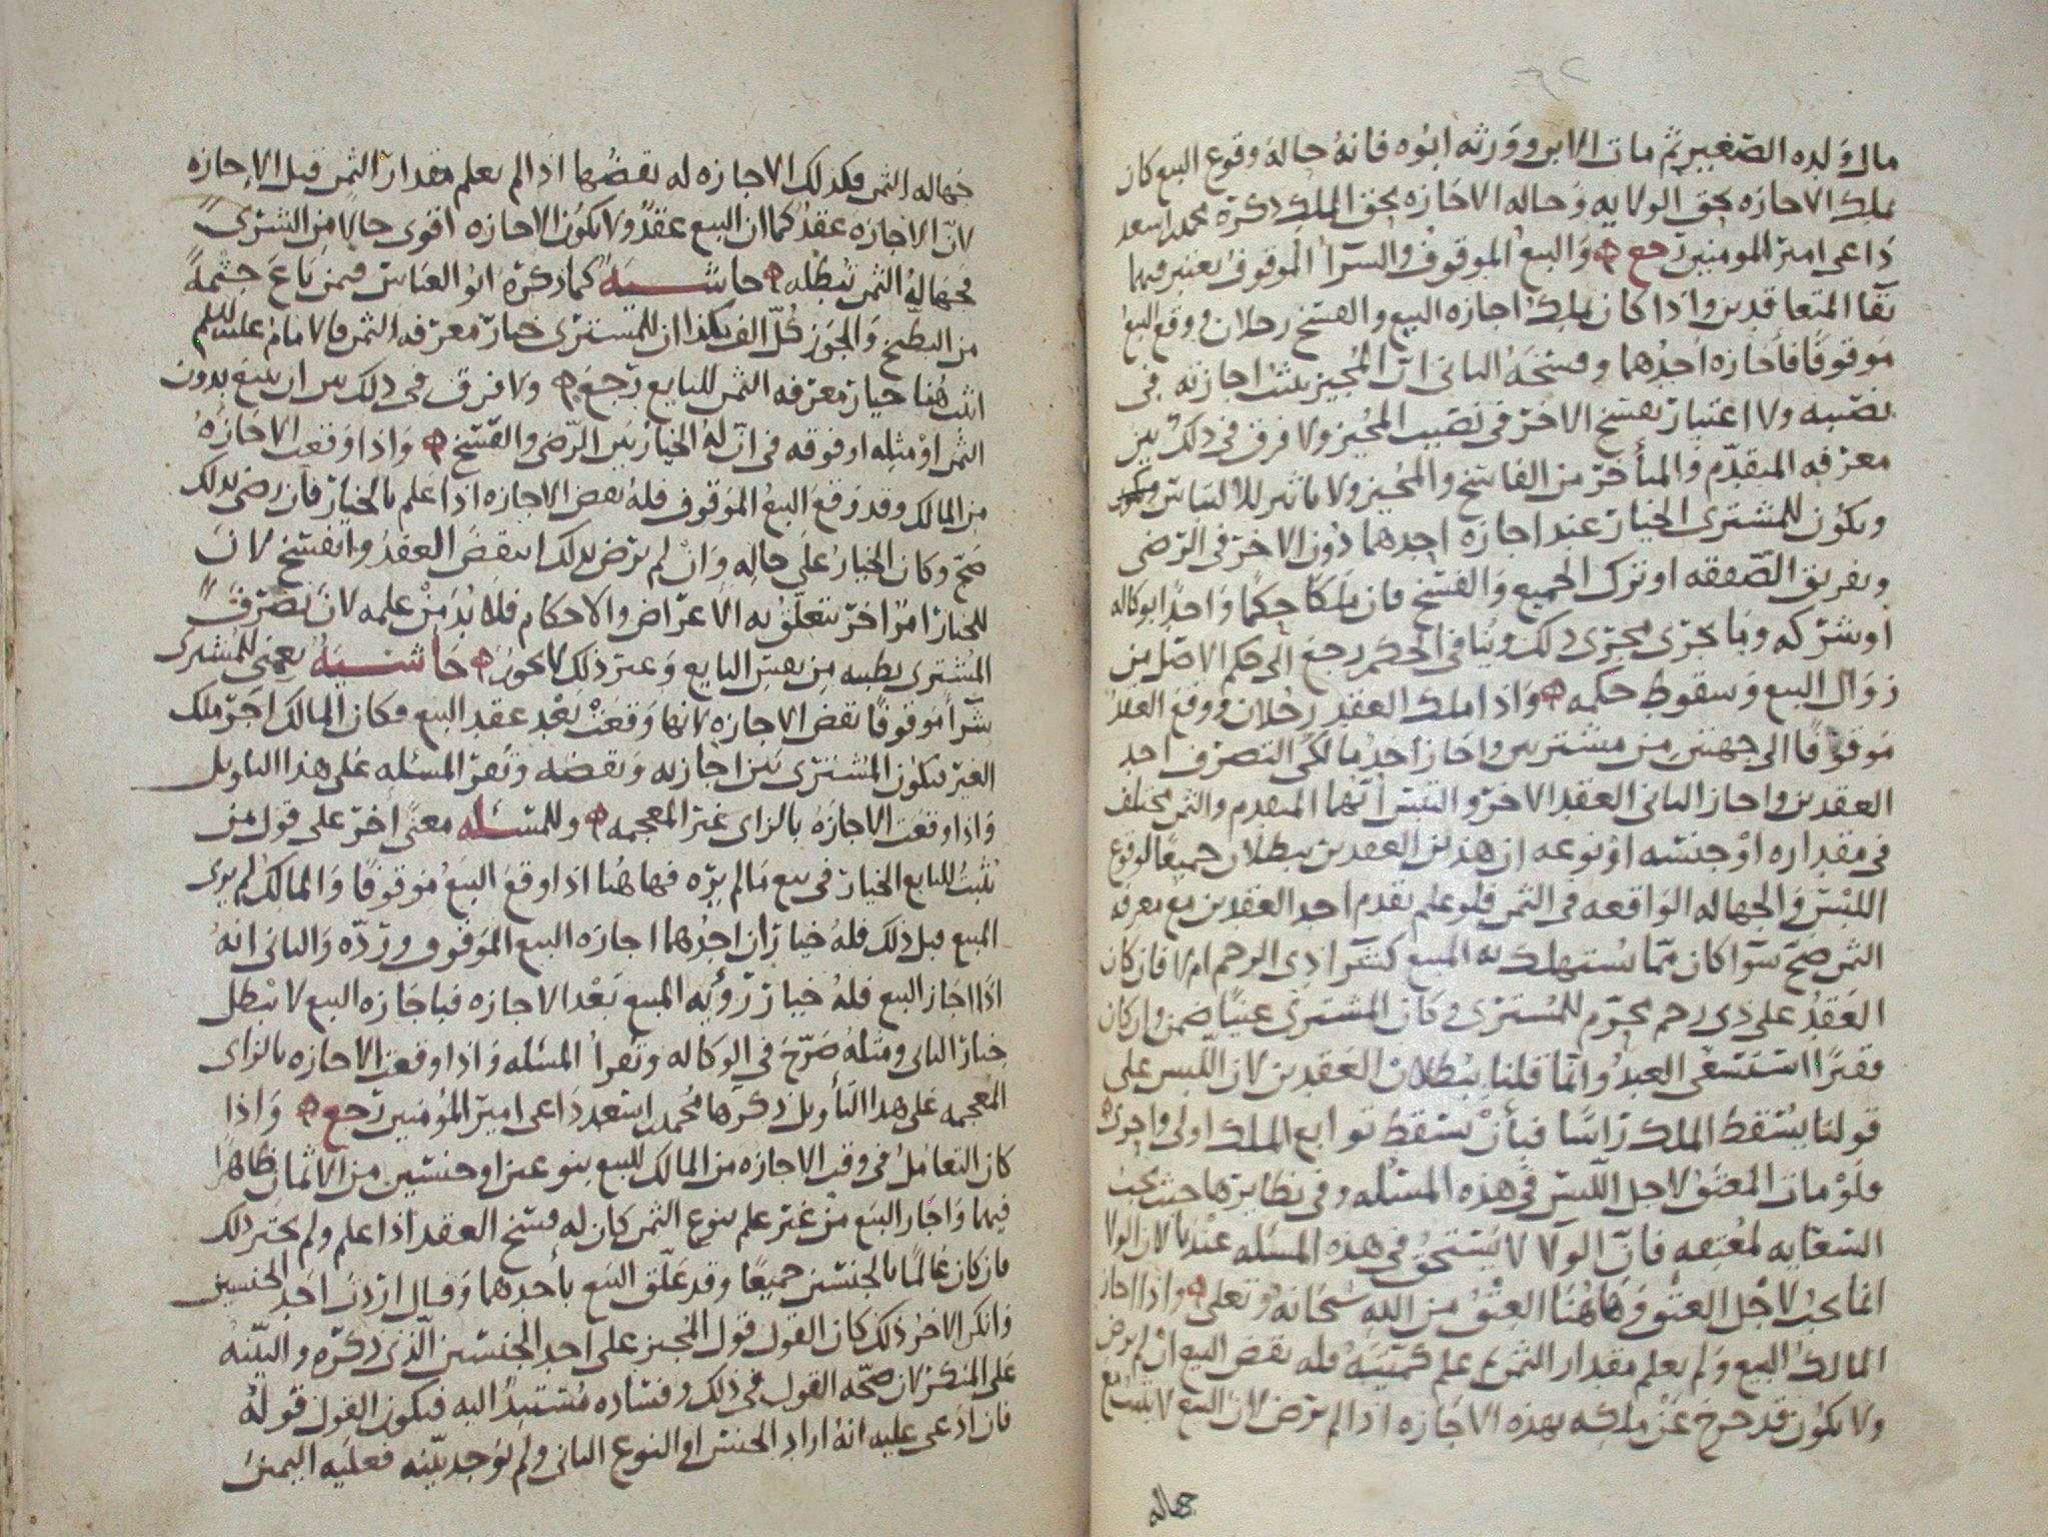 مال ولده الصغير ثم مات الابن وورثه ابوه فانه حاله وقوع البيع كان
يملك الاجازه بحق الولايه وحاله الاجازه بحق الملك ذكره محمد اسعد
داعى امير المومنين رجع ۞ والبيع الموقوف والشرا الموقوف يعتبر فيهما
بقا المتعاقدين واذا كان يملك اجازه البيع والفسخ رجلان ووقع البيع
موقوفا فاجازه احدهما وفسخه الثانى ان المجيز يثبت اجازته فى
نصيبه ولا اعتبار بفسخ الاخر فى نصيب المجيز ولا فرق فى ذلك بين
معرفه المتقدم والمتأخر من الفاسخ والمجيز ولا تاثير للالتباس
ويكون للمشترى الخيار عند اجازه احدهما دون الاخر فى الرضى
وبفريق الصفقه او ترك الجميع والفسخ فان ملكا حكما واحدا بوكاله
او شركه وما يجرى مجرى ذلك وتنافى الحكم رجع الى حكم الاصل من
زوال البيع وسقوط حكمه ۞ واذا ملك العقد رجلان ووقع العقد
موقوفا الى جهتين من مشتريين واجاز احد مالكى التصرف احد
العقدين واجاز الثانى العقد الاخر والتبس ايهما المتقدم والثمن مختلف
فى مقداره او جنسه او نوعه ان هذين العقدين يبطلان جميعا لوقوع
اللبس والجهاله الواقعه فى الثمن فلو علم تقدم احد العقدين مع معرفه
الثمن صح سوا كان مما يستهلك به المبيع كشرا ذى الرحم ام لا فان كان
العقد على ذى رحم محرم للمشترى وكان المشترى غنيا ضمن وان كان
فقيرا استسعى العبد وانما قلنا ببطلان العقدين لان اللبس على
قولنا يسقط الملك راسا فبأن يسقط توابع الملك اولى واحرى ۞
ولو مات المعتق لاجل اللبس فى هذه المسئله وفى نظايرها حيث يجب
السعايه لمعتقه فان الولا لا يستحق فى هذه المسئله عندنا لان الولا
انما يجب لاجل العتق وهاهنا العتق من الله سبحانه وتعلى ۞ واذا اجاز
المالك البيع ولم يعلم مقدار الثمن ثم علم كميته فله نقض البيع ان لم يرض
ولا يكون قد خرج عن ملكه بهذه الاجازه اذا لم يرض لان البيع لا يثبت مع
جهاله
جهاله الثمن فكذلك الاجازه له نقضها اذا لم يعلم مقدار الثمن قبل الاجازه
لان الاجازه عقد كما ان البيع عقد ولا يكون الاجازه اقوى حالا من الشرى
فجهاله الثمن تبطله ۞ حاشيه كما ذكره ابو العباس فيمن باع جثمه
من البطيخ والجوز كل الف بكذا ان للمشترى خيار معرفه الثمن فالامام عليه السلم
اثبت هنا خيار معرفه الثمن للبايع رجع ۞ ولا فرق فى ذلك بين ان يبيع بدون
الثمن او مثله او فوقه فى ان له الخيار بين الرضى والفسخ ۞ واذا وقعت الاجازه
من المالك وقد وقع البيع الموقوف فله نقض الاجازه اذا علم بالخيار فان رضى بذلك
صح وكان الخيار على حاله وان لم يرض بذلك انتقض العقد وانفسخ لان
للخيار امرا اخر تتعلق به الاعراض والاحكام فلا بد من علمه لان تصرف
المشترى بطيبه من نفس البايع وغير ذلك لا يجوز ۞ حاشيه يعنى للمشترى
شرأ موقوفا نقض الاجازه لانها وقعت بعد عقد البيع فكان المالك اجر ملك
الغير فيكون المشترى بين اجازته ونقضه وتقر المسئله على هذا التاويل
واذا وقعت الاجازه بالراى غير المعجمه ۞ وللمسئله معنى اخر على قول من
يثبت للبايع الخيار فى بيع ما لم يره فهاهنا اذا وقع البيع موقوفا والمالك لم يرى
المبيع قبل ذلك فله خياران احدهما اجازه البيع الموقوف ورده والثانى انه
اذا اجاز البيع فله خيار رؤيه المبيع بعد الاجازه فباجازه البيع لا يبطل
خيار الثانى ومثله صرح فى الوكاله وتقرأ المسئله واذا وقعت الاجازه بالزاى
المعجمه على هذا التأويل ذكرها محمد اسعد داعى امير المؤمنين رجع ۞ واذا
كان التعامل فى وقت الاجازه من المالك للبيع بنوعين او جنسين من الاثمان ظاهرا
فيهما واجاز البيع من غير علم بنوع الثمن كان له فسخ العقد اذا علم ولم يختر ذلك
فان كان عالما بالجنسين جميعا وقد علق البيع بأحدهما وقال اردت احد الجنسين
وانكر الاخر ذلك كان القول قول المجيز على احد الجنسين الذى ذكره والبينه
على المنكر لان صحه القول فى ذلك وفساده مستندا اليه فيكون القول قوله
فان ادعى عليه انه اراد الجنس او النوع الثانى ولم يوجد بينه فعليه اليمين